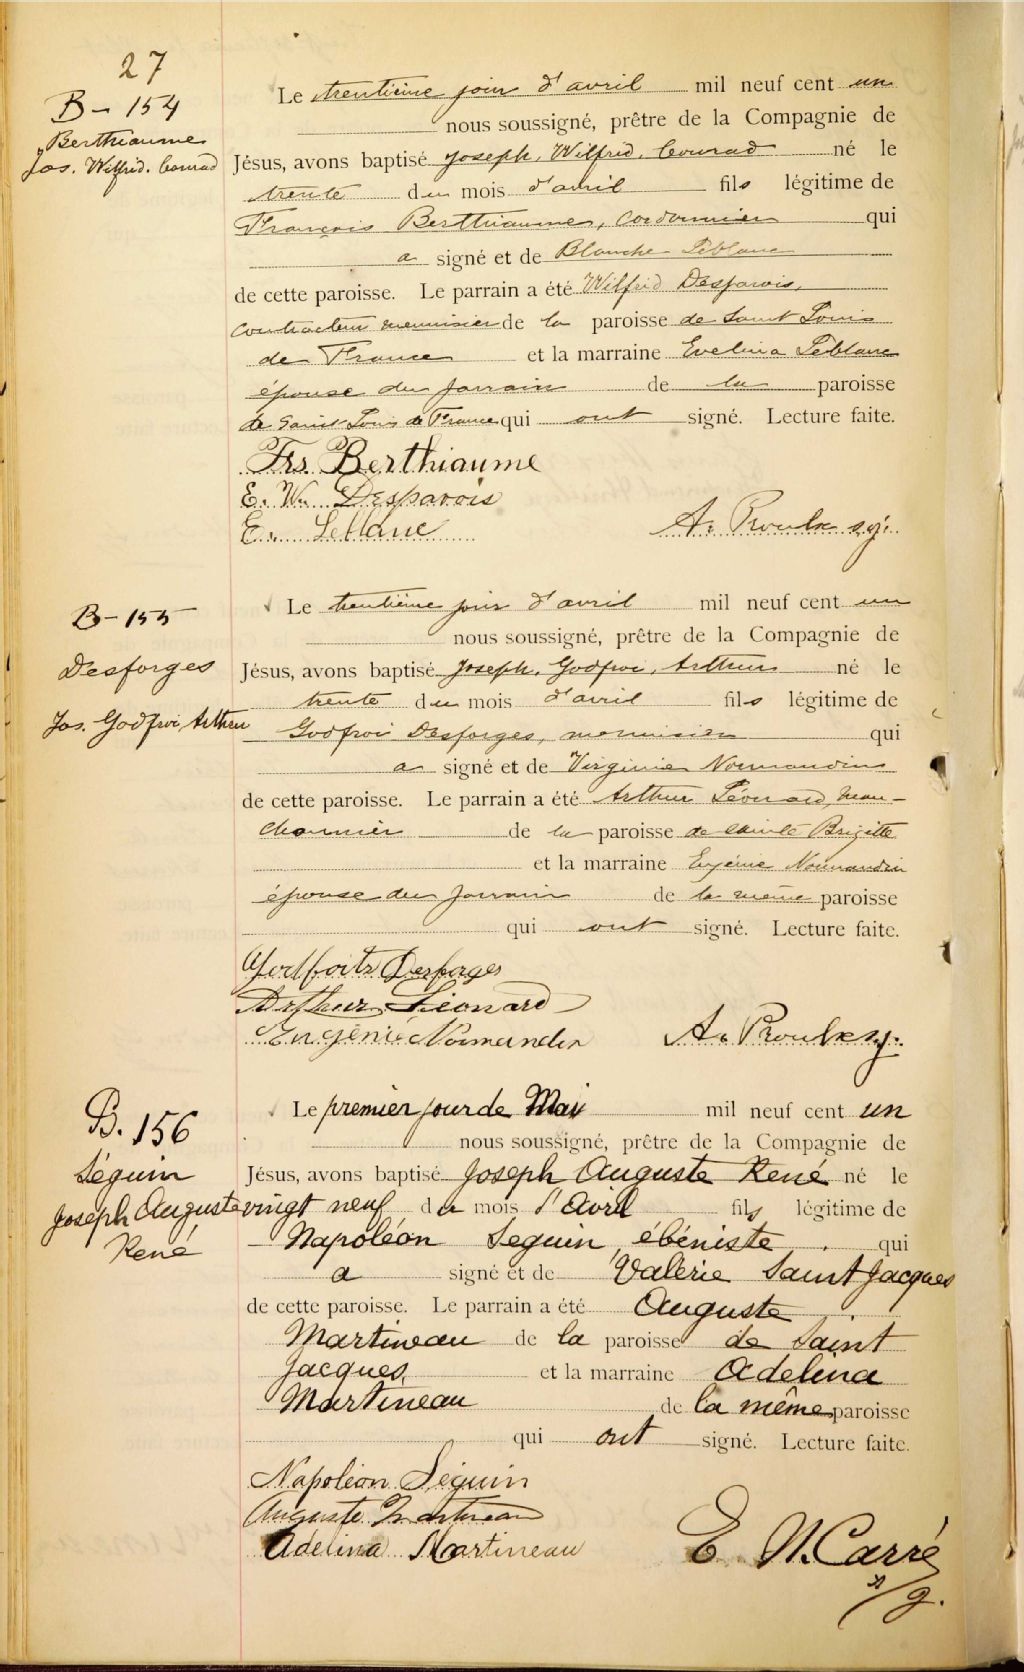 27
B - 154
Berthiaume
Jos. Wilfrid. Conrad
Le trentième jour d'avril mil neuf cent un
nous soussigné, prêtre de la Compagnie de
Jésus, avons baptisé Joseph, Wilfrid, Conrad né le
trente du mois d'avril fils légitime de
François Berthiaume, cordonnier qui
a signé et de Blanche Leblanc
de cette paroisse. Le parrain a été Wilfrid Desparois,
contracteur menuisier de la paroisse de Saint Louis
de France et la marraine Evelina Leblanc
épouse du parrain de la paroisse
de Saint Louis de France qui ont signé. Lecture faite.
Frs. Berthiaume
E. W. Desparois
E. Leblanc
A. Proulx s.j.
B - 155
Desforges
Jos. Godfroi Arthur
Le trentième jour d'avril mil neuf cent un
nous soussigné, prêtre de la Compagnie de
Jésus, avons baptisé Joseph, Godfroi, Arthur né le
trente du mois d'avril fils légitime de
Godfroi Desforges, menuisier qui
a signé et de Virginie Normandin
de cette paroisse. Le parrain a été Arthur Léonard,
de la paroisse de Sainte Brigitte
et la marraine Eugénie Normandin
épouse du parrain de la même paroisse
qui ont signé. Lecture faite.
Desforges
Arthur Léonard
Eugénie Normandin
A. Proulx s.j.
B. 156
Séguin
Joseph Auguste
René
Le premier jour de Mai mil neuf cent un
nous soussigné, prêtre de la Compagnie de
Jésus, avons baptisé Joseph Auguste René né le
vingt neuf du mois d'Avril fils légitime de
Napoléon Seguin, ébéniste qui
a signé et de Valérie Saint Jacques
de cette paroisse. Le parrain a été Auguste
Martineau de la paroisse de Saint
Jacques, et la marraine Adelina
Martineau de la même paroisse
qui ont signé. Lecture faite.
Napoléon Séguin
Auguste Martineau
Adelina Martineau
E. N. Carré
s/j.